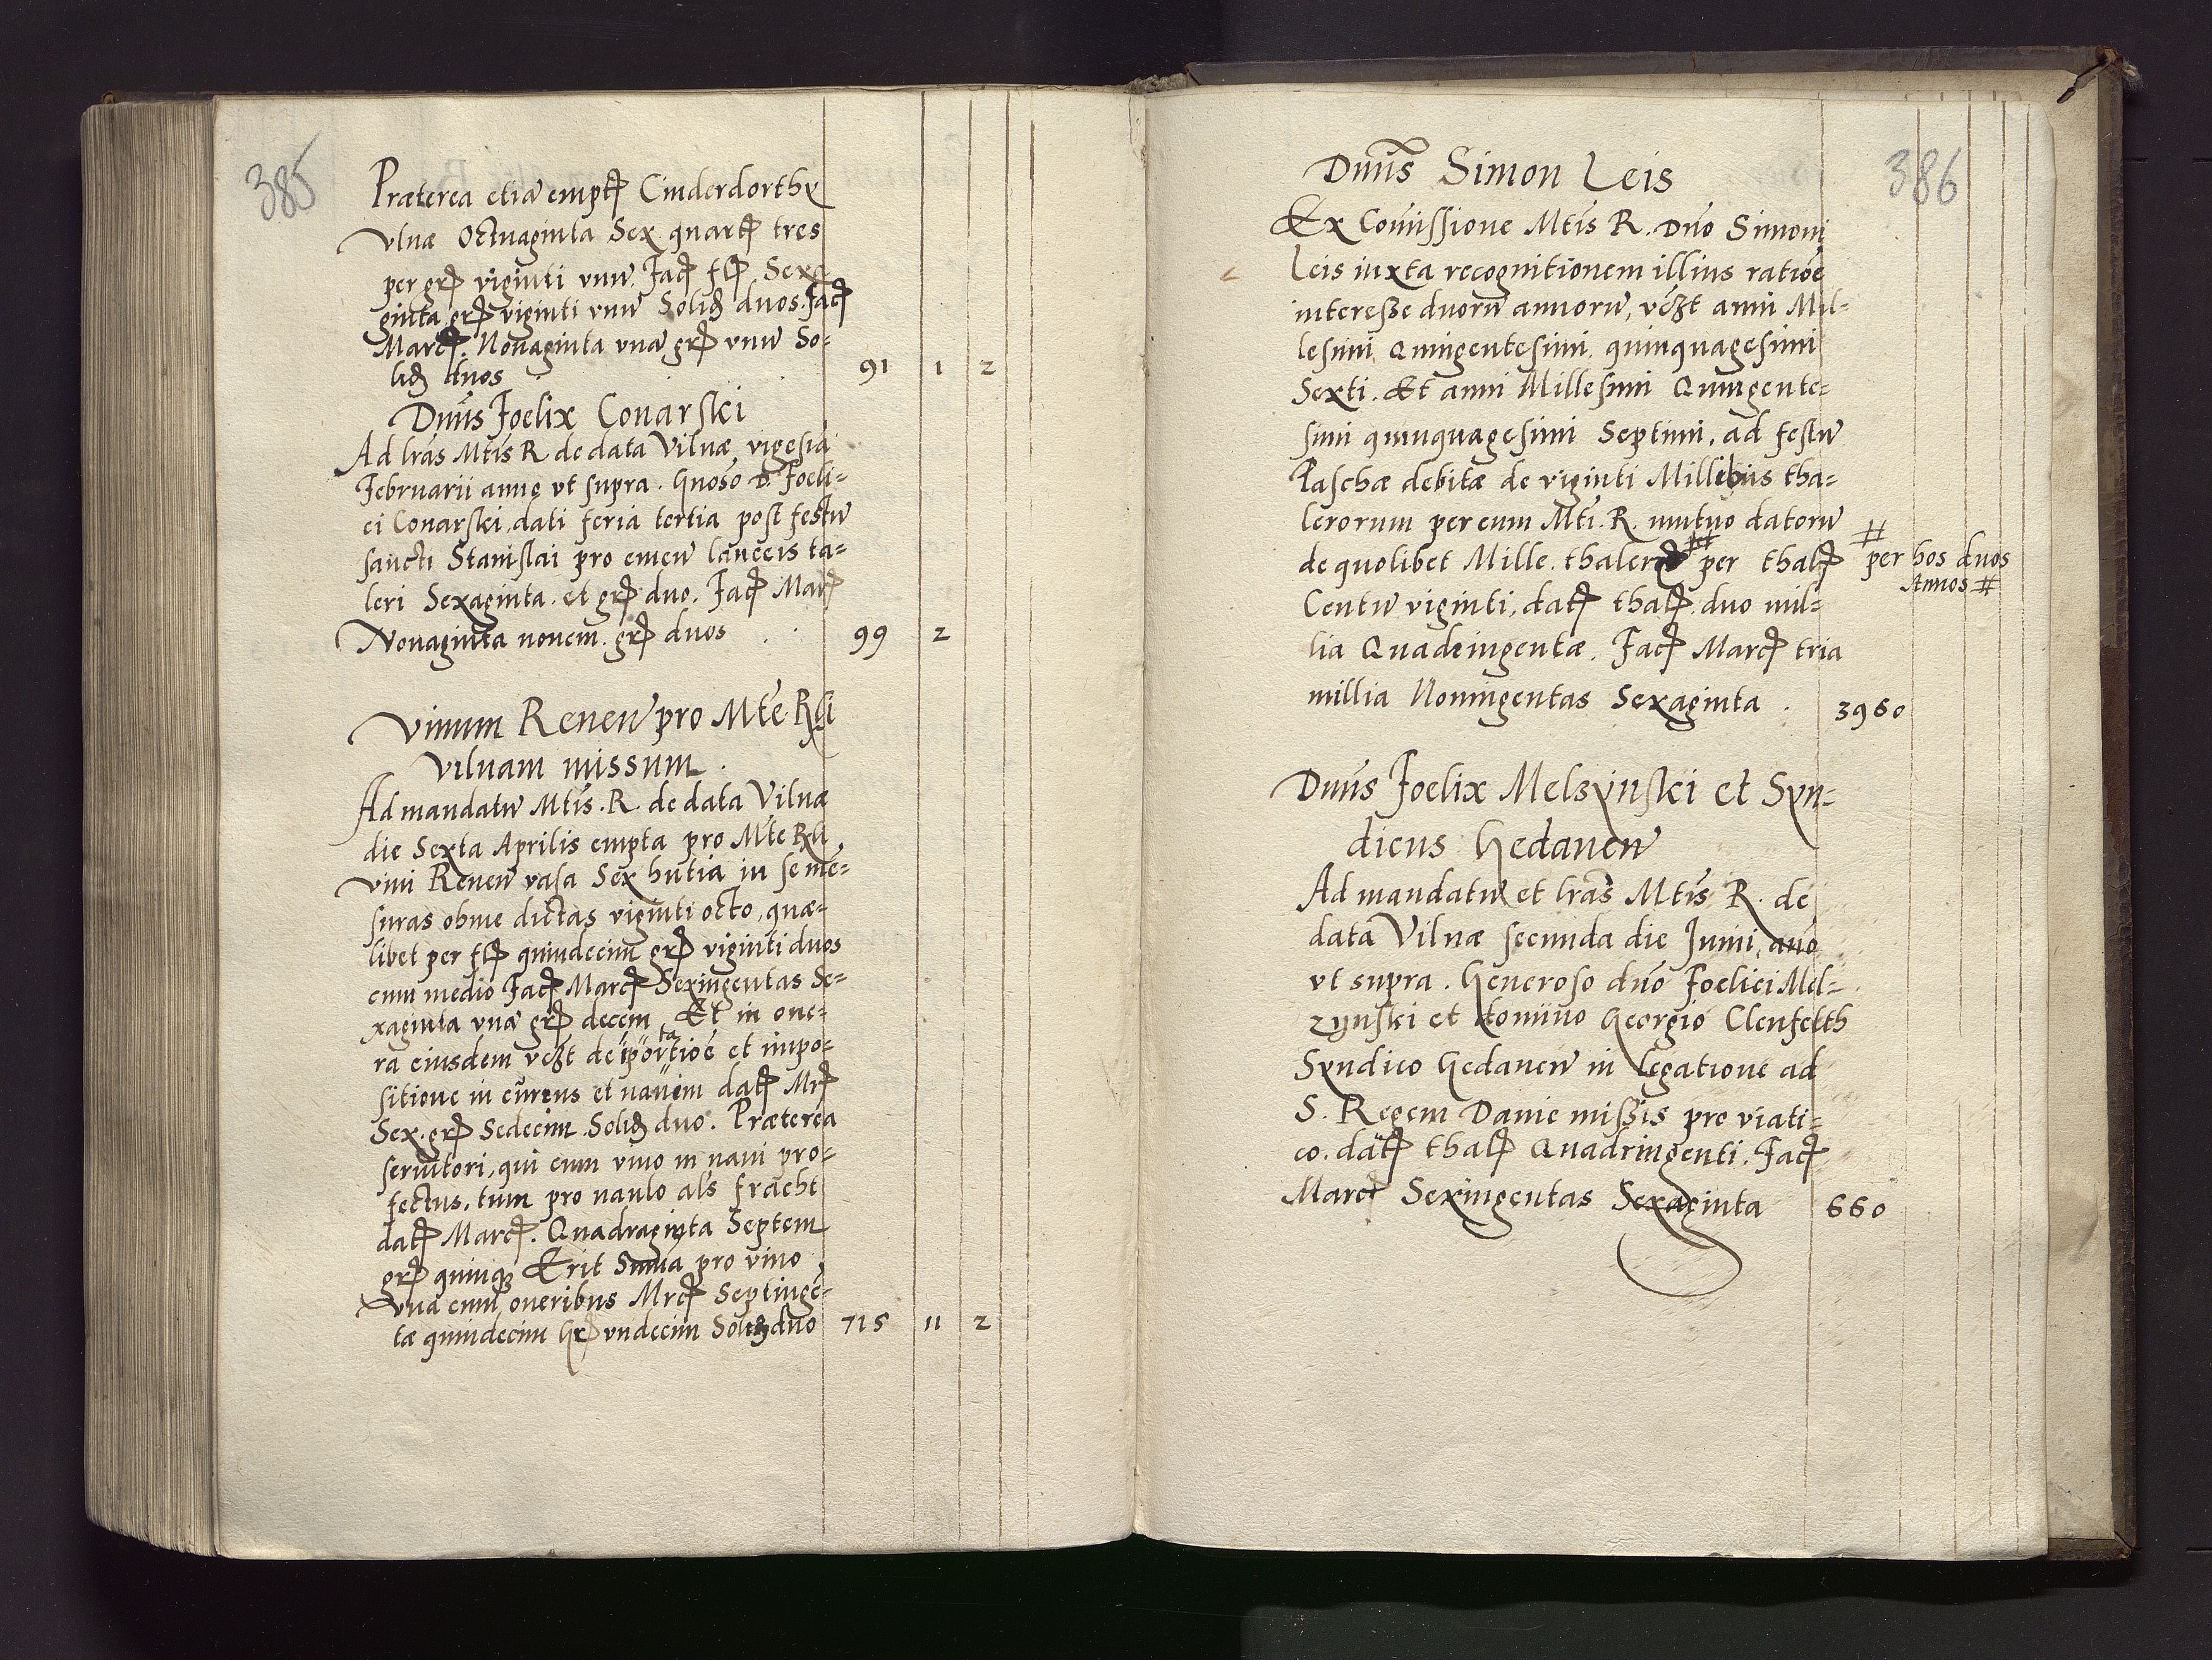 385
Præterea etiã empt Cinderdorthÿ
vlnæ Octuaginta Sex quart tres
per gr viginti vnũ. Fac fl. Sexa-
ginta gr viginti vnũ Solid duos. Fac
Marc. Nonaginta vna gr vnũ So-
lid duos 91 1 2
Dnũs Foelix Conarski
Ad lras Mtis R de data Vilnæ, vigesia
Februarii anno vt supra. Gnoso D. Foeli-
ci Conarski, dati feria tertia post festũ
sancti Stanislai pro emen lanceis ta-
leri Sexaginta. et gr duo. Fac Marc
Nonaginta nonem. gr duos 99 2
Vinum Renen pro Mte Rli
Vilnam missum.
Ad mandatũ Mtis. R. de data Vilnæ
die Sexta Aprilis empta pro Mte Rli
vini Renen vasa Sex hntia in se me-
suras ohme dictas viginti octo, quæ-
libet per fl quindecim gr viginti duos
cum medio Fac Marc Sexingentas Se-
xaginta vna gr decem. Et in one-
ra eiusdem vczt de portatioe et impo-
sitione in currus et navem dat Mr
Sex. gr Sedecim Solid duo. Præterea
servitori, qui cum vino in navi pro-
fectus, tum pro naulo als fracht
dat Marc. Quadraginta Septem
gr quinq Erit Summa pro vino
Vna cum oneribus Mrc Septinge-
tæ quindecim Gr vndecim Solid duo 715 11 2
386
Dnũs Simon Leis
Ex Comissione Mtis R. Dno Simoni
Leis iuxta recognitionem illius ratioe
interesse duorũ annorũ, vczt anni Mil-
lesimi Quingentesimi quinquagesimi
Sexti. Et anni Millesimi Quingente-
simi quinquagesimi Septimi, ad festũ
Paschæ debitæ de viginti Millebus tha-
lerorum per eum Mti. R. mutuo datorũ
de quolibet Mille. thaler # per thal
# per hos duos
Annos #
Centũ viginti, dat thal. duo mil-
lia Quadringentæ. Fac Marc tria
millia Noningentas Sexaginta. 3960
Dnũs Foelix Melsÿnski et Sÿn-
dicus Gedanen
Ad mandatũ et lras Mtis R. de
data Vilnæ secunda die Junii, ano
vt supra. Generoso dno Foelici Mel-
zÿnski et domino Georgio Clenfelth
Sÿndico Gedanen in legatione ad
S. Regem Danie missis pro viati-
co. dat thal Quadringenti. Fac
Marc Sexingentas Sexaginta 660